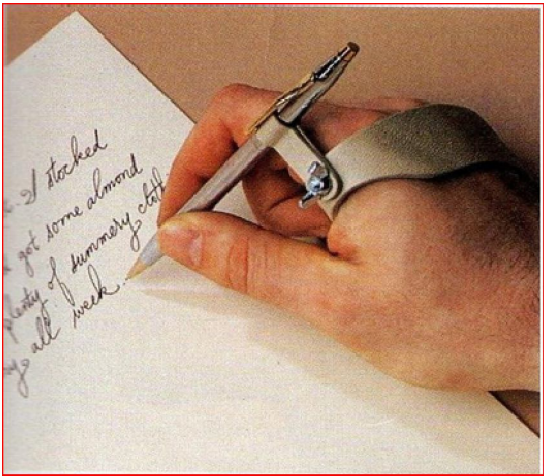 I stocked
got some almond
plenty of summery cloth
all week.